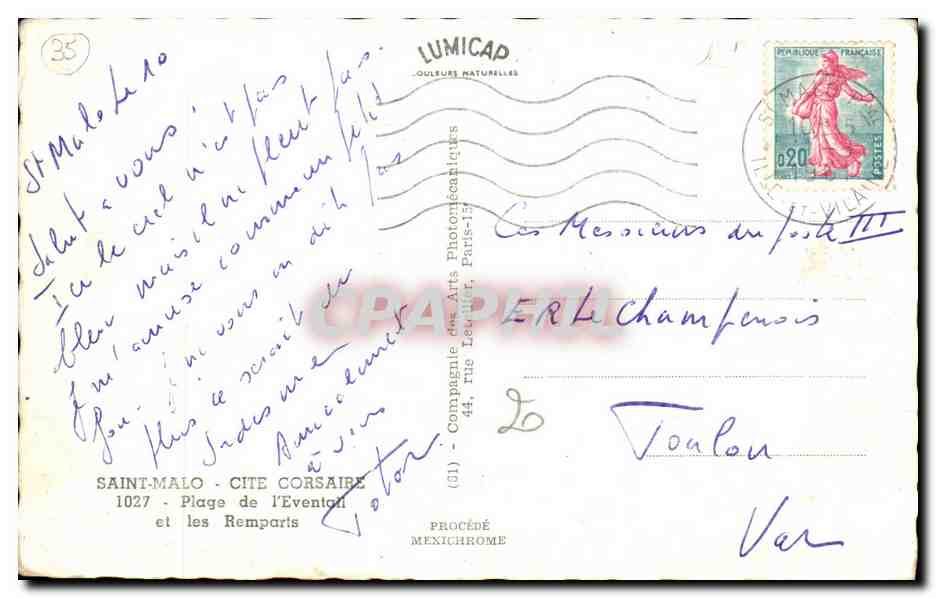 35
LUMICAP
COULEURS NATURELLES
REPUBLIQUE FRANÇAISE
0,20
POSTES
ST MALO
ILLE-ET-VILAINE
St Malo le 10
Salut à vous !
Ici le ciel n'est pas
bleu mais il ne pleut pas.
Je m'amuse comme un petit
fou. Je ne vous en dit pas
plus ce serait
Amicalement
à vous
Totor.
SAINT-MALO - CITE CORSAIRE
1027 - Plage de l'Eventail
et les Remparts
(01) - Compagnie des Arts Photomécaniques
44, rue Letellier, Paris-15e
PROCÉDÉ
MEXICHROME
CPAPHIL
Ces Messieurs du poste III
ER Le Champenois
Toulon
Var